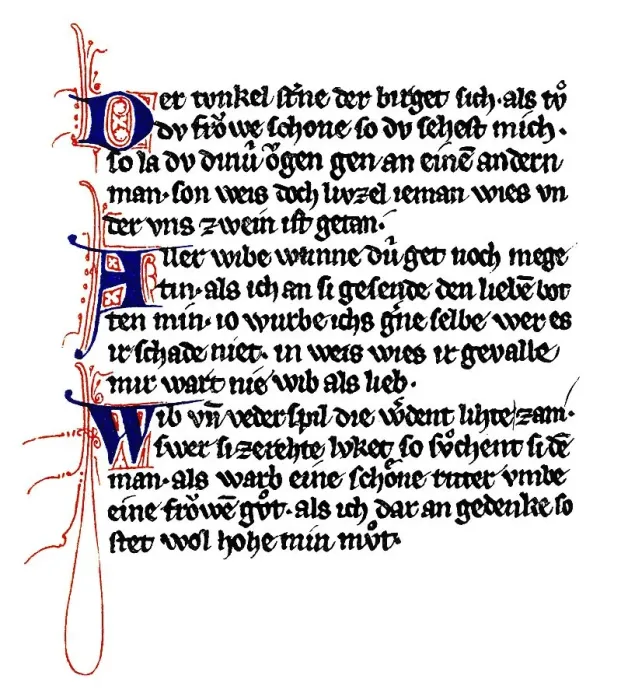 Der tunkel sťne der birget sich·als tuͦ
dv froͮwe schone so dv sehest mich·
so la dv diniv̂ oͮgen gen an einē andern
man·son weis doch lvzel ieman wies vn
der vns zwein ist getan·
Aller wibe wunne dv̂ get noch mege
tin·als ich an si gesende den liebē bot
ten min·io wurbe ichs gⁱne selbe wer es
ir schade niet· in weis wies ir gevalle
mir wart nie wib als lieb·
Wib vn̄ vederspil die wͤdent lihte zam·
swer si zerehte lvket so svͦchent si dē
man·als warb eine schoͤne ritter vmbe
eine froͮwē gvͦt·als ich dar an gedenke so
stet wol hohe min mvͦt·